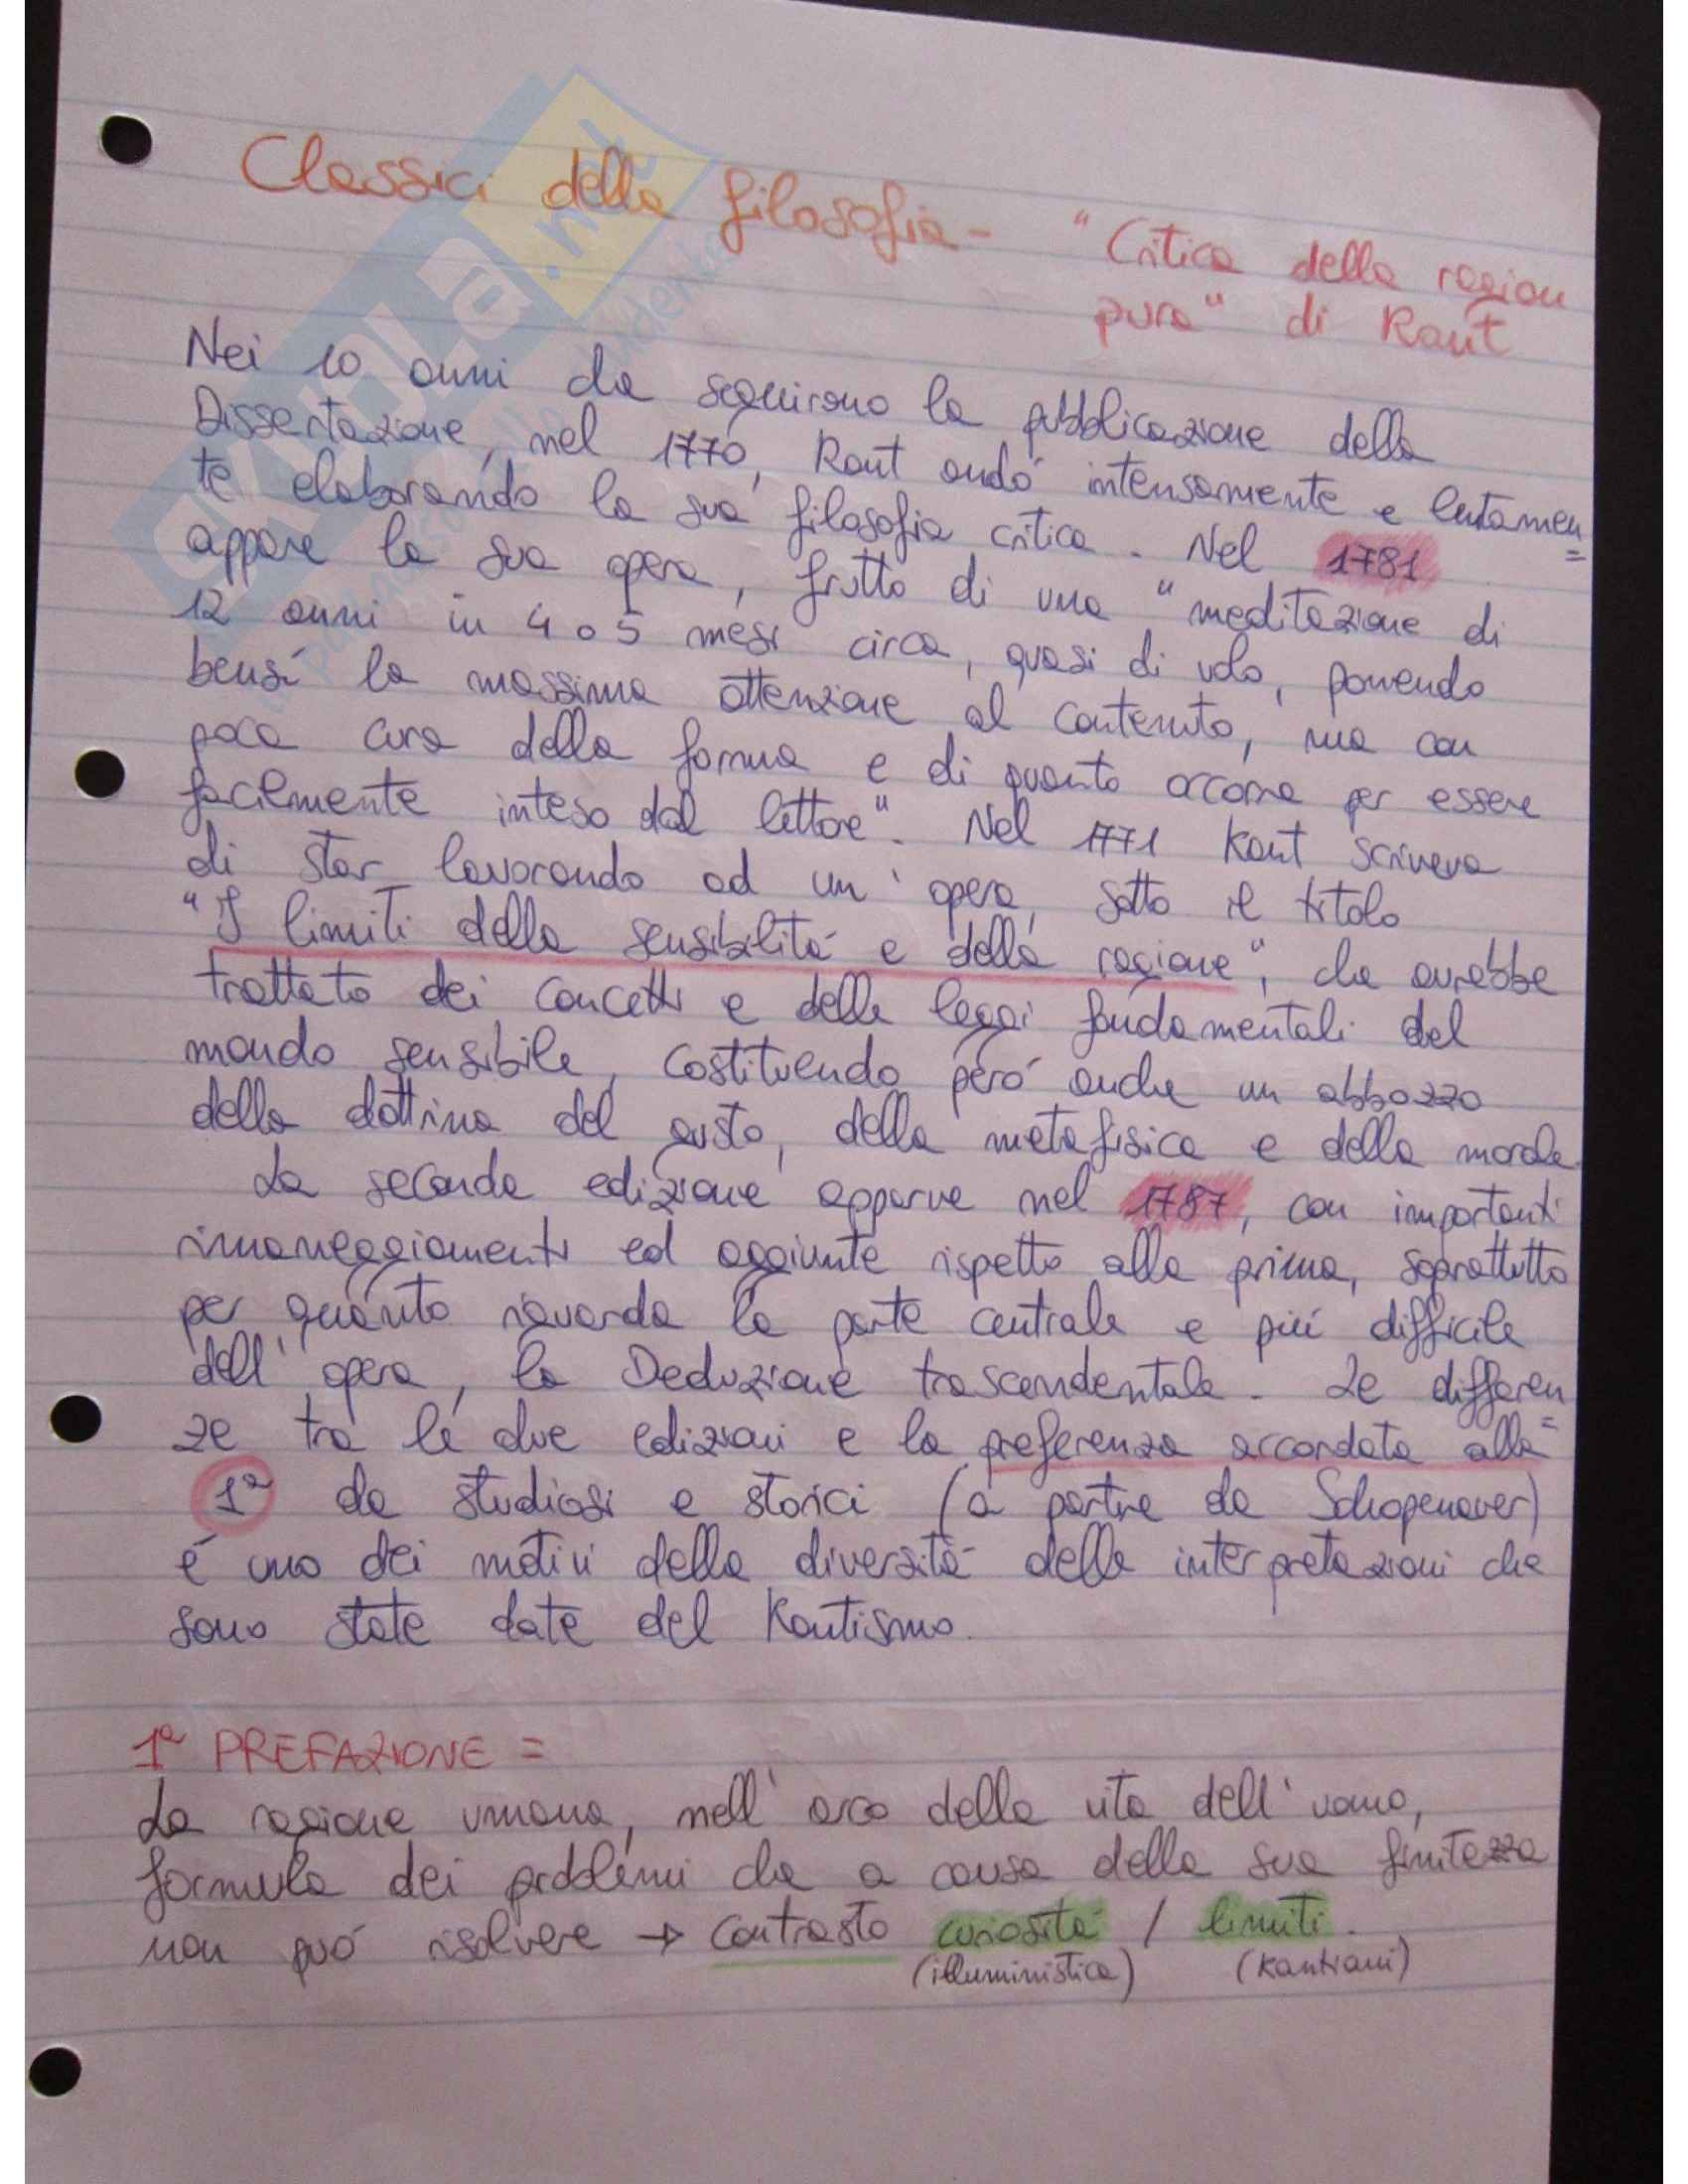 Classici della filosofia - "Critica della ragion
pura" di Kant
Nei 10 anni che seguirono la pubblicazione della
Dissertazione, nel 1770, Kant andò intensamente e lentamen=
te elaborando la sua filosofia critica. Nel 1781
appare la sua opera, frutto di una "meditazione di
12 anni in 4 o 5 mesi circa, quasi di volo, ponendo
bensì la massima attenzione al contenuto, ma con
poca cura della forma e di quanto occorre per essere
facilmente inteso dal lettore". Nel 1771 Kant scriveva
di star lavorando ad un'opera, sotto il titolo
"I limiti della sensibilità e della ragione", che avrebbe
trattato dei concetti e delle leggi fondamentali del
mondo sensibile, costituendo però anche un abbozzo
della dottrina del gusto, della metafisica e della morale.
La seconda edizione apparve nel 1787, con importanti
rimaneggiamenti ed aggiunte rispetto alla prima, soprattutto
per quanto riguarda la parte centrale e più difficile
dell'opera, la Deduzione trascendentale. Le differen=
ze tra le due edizioni e la preferenza accordata alla
1ª da studiosi e storici (a partire da Schopenauer)
é uno dei motivi della diversità delle interpretazioni che
sono state date del Kantismo.
1ª PREFAZIONE =
La ragione umana, nell'arco della vita dell'uomo,
formula dei problemi che a causa della sua finitezza
non può risolvere → contrasto curiosità / limiti.
(illuministica) (kantiani)